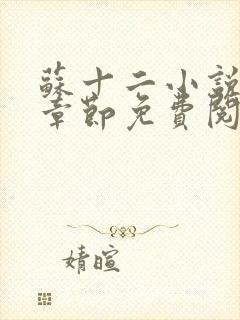 蘇十二小說
章節免費閱
婧暄